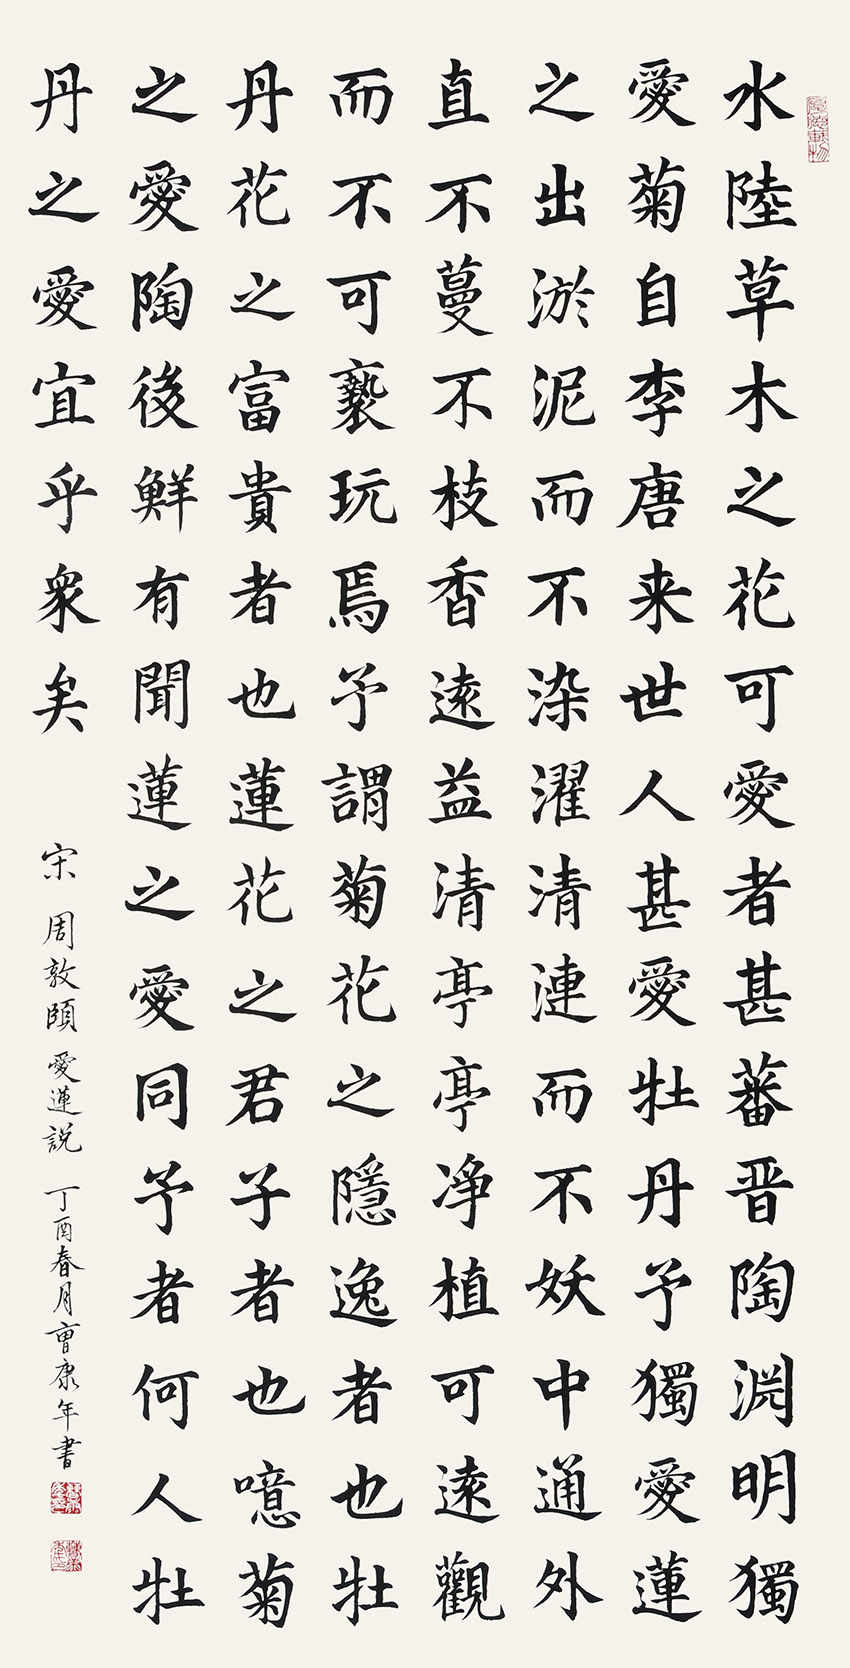 水陸草木之花可愛者甚蕃晋陶淵明獨
愛菊自李唐来世人甚愛牡丹予獨愛蓮
之出淤泥而不染濯清漣而不妖中通外
直不蔓不枝香遠益清亭亭凈植可遠觀
而不可褻玩焉予謂菊花之隱逸者也牡
丹花之富貴者也蓮花之君子者也噫菊
之愛陶後鮮有聞蓮之愛同予者何人牡
丹之愛宜乎衆矣
宋 周敦頤 愛蓮説 丁酉春月曹康年書
厚德載物